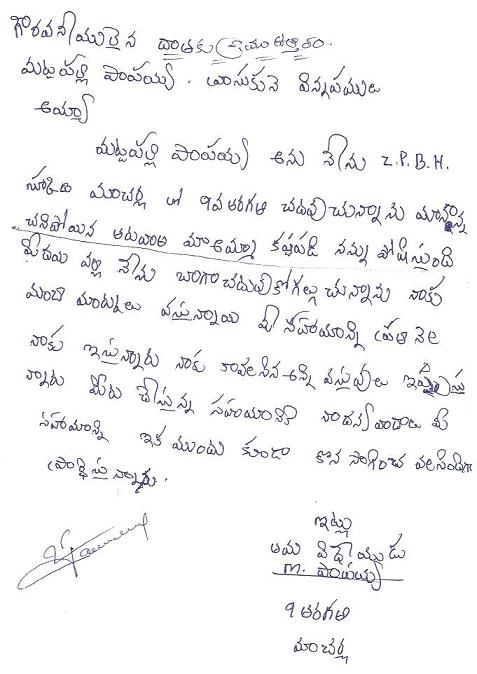 గౌరవనీయులైన దాతకు వ్రాయు ఉత్తరం.
మట్టపల్లి పాంపయ్య. వ్రాసుకునె విన్నపములు
అయ్యా
మట్టపల్లి పాంపయ్య అను నేను Z.P.B.H.
స్కూలు మంచర్ల లో 9వ తరగతి చదువుచున్నాను మానాన్న
చనిపోయిన తరువాత మా అమ్మా కష్టపడి నన్ను పోషిస్తుంది
మీదయ వల్ల నేను బాగా చదువుకోగల్గుచున్నాను నాకు
మంచి మార్కులు వస్తున్నాయి మీ సహాయాన్ని ప్రతి నెల
నాకు ఇస్తున్నారు నాకు కావలసిన అన్ని వస్తువులు ఇప్పిస్తు
న్నారు మీరు చేస్తున్న సహయానికి నాధన్యవాదాలు మీ
సహాయాన్ని ఇక ముందు కుడా కొన సాగించ వలసిందిగా
ప్రార్థిస్తున్నాను.
ఇట్లు
తమ విధేయుడు
m. పాంపయ్య
9 తరగతి
మాంచర్ల